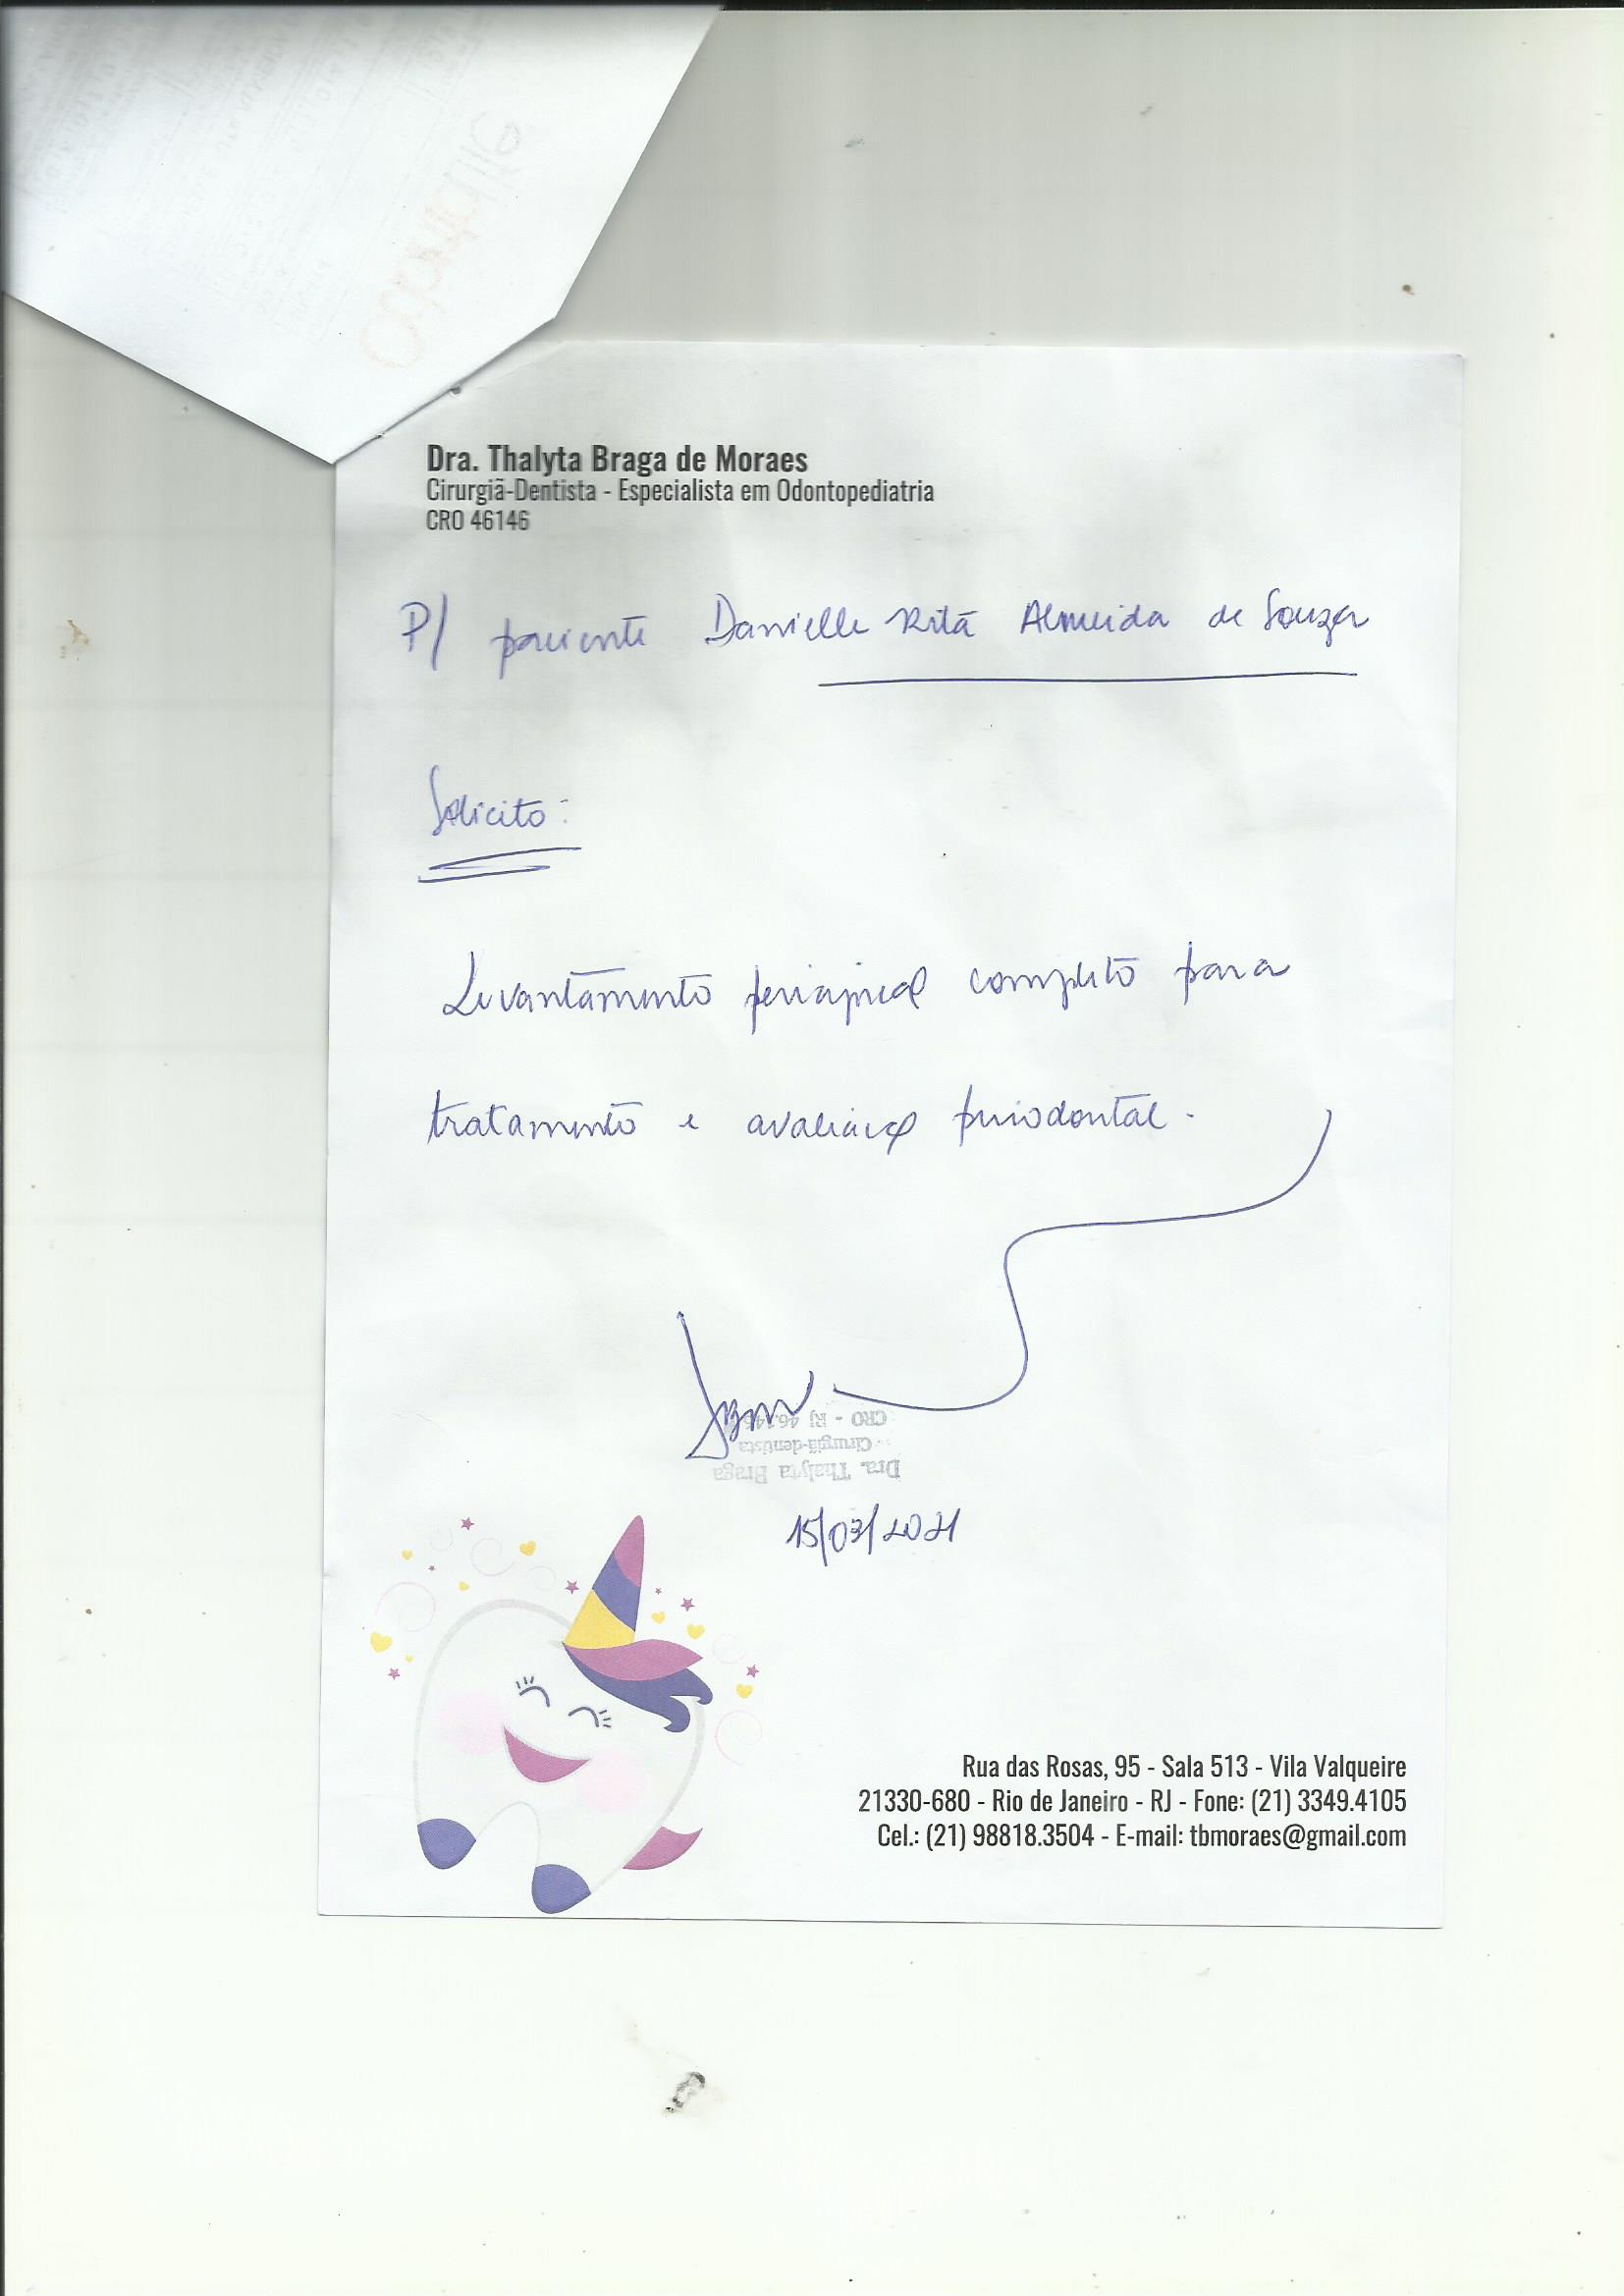 Dra. Thalyta Braga de Moraes
Cirurgiã-Dentista - Especialista em Odontopediatria
CRO 46146
P/ paciente Danielle Rita Almeida de Souza
Solicito:
Levantamento periapical completo para
tratamento e avaliação periodontal.
CRO - RJ 46.146
Cirurgiã-dentista
Dra. Thalyta Braga
15/03/2021
Rua das Rosas, 95 - Sala 513 - Vila Valqueire
21330-680 - Rio de Janeiro - RJ - Fone: (21) 3349.4105
Cel.: (21) 98818.3504 - E-mail: tbmoraes@gmail.com